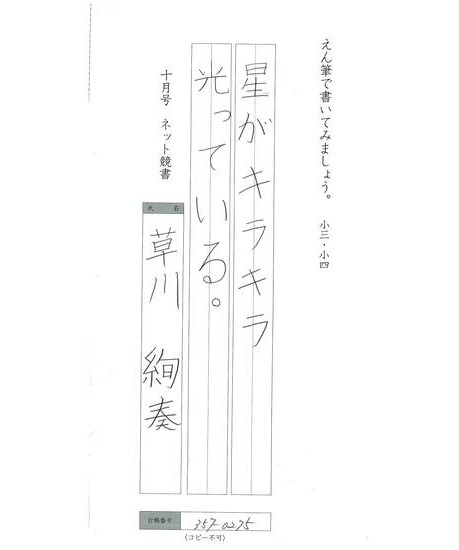 えん筆で書いてみましょう。 小三・小四
星がキラキラ
光っている。
十月号 ネット競書
氏名
草川 絢奏
台帳番号 357-0275
(コピー不可)